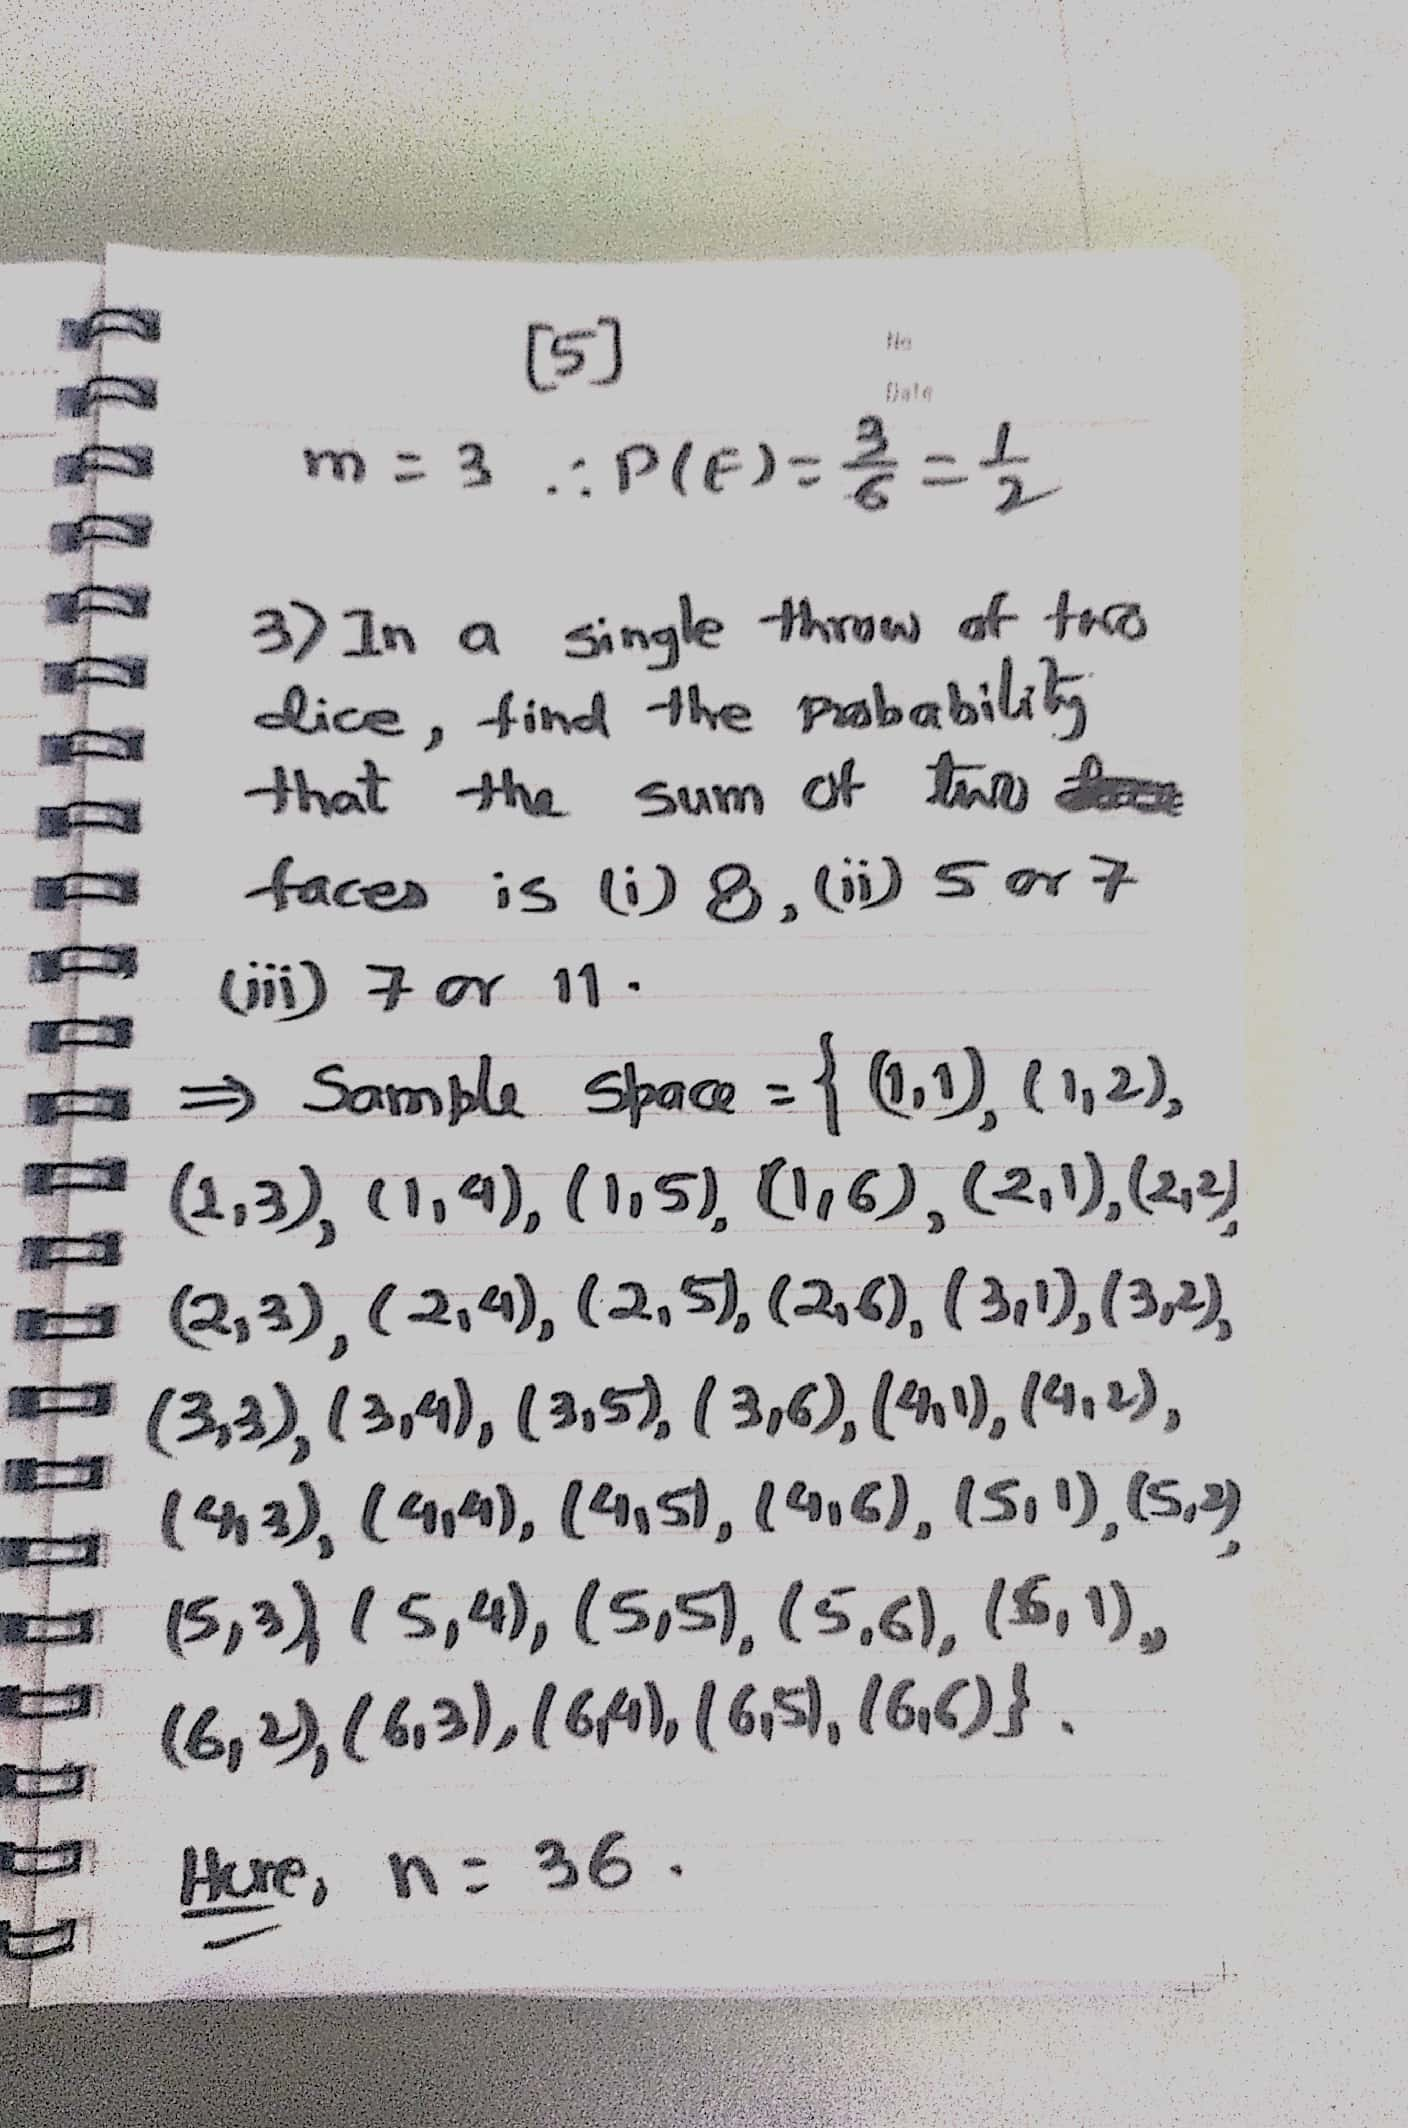 [5]
No
Date
m = 3 ∴ P(E) = 3/6 = 1/2
3) In a single throw of two
dice, find the probability
that the sum of two
faces is (i) 8, (ii) 5 or 7
(iii) 7 or 11.
⇒ Sample space = { (1,1), (1,2),
(1,3), (1,4), (1,5), (1,6), (2,1), (2,2),
(2,3), (2,4), (2,5), (2,6), (3,1), (3,2),
(3,3), (3,4), (3,5), (3,6), (4,1), (4,2),
(4,3), (4,4), (4,5), (4,6), (5,1), (5,2),
(5,3), (5,4), (5,5), (5,6), (6,1),
(6,2), (6,3), (6,4), (6,5), (6,6)}.
Here, n = 36.